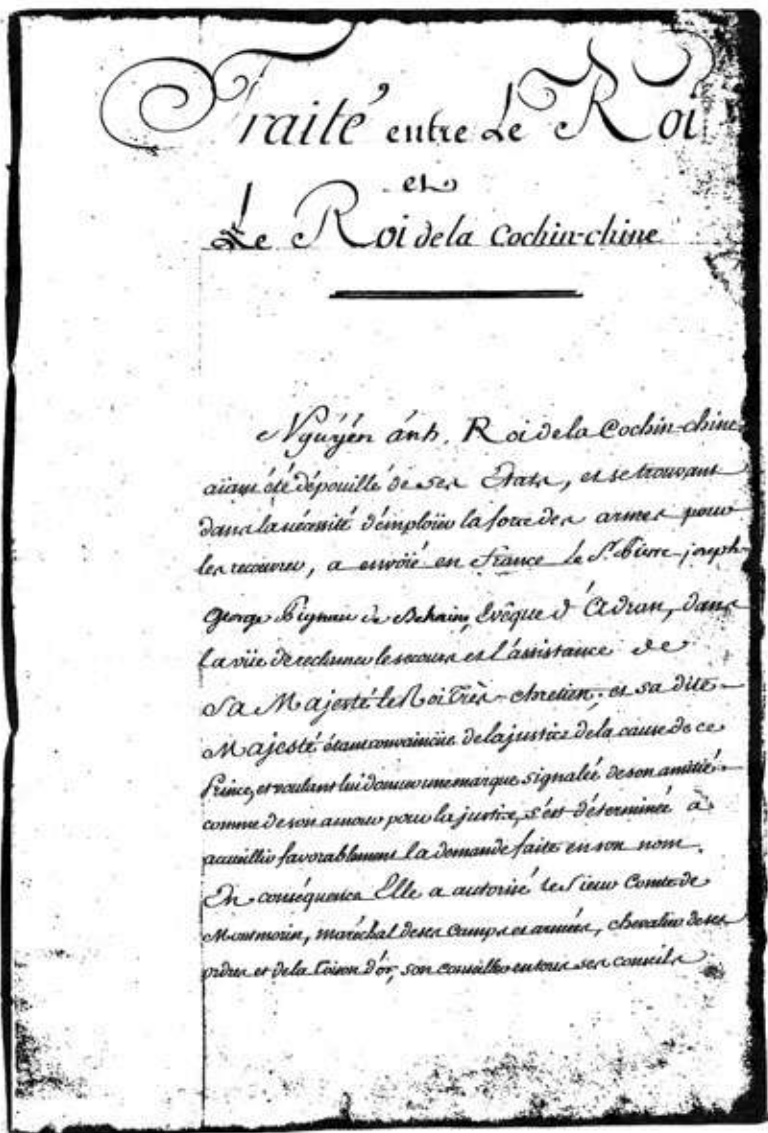 Traité entre Le Roi
et
Le Roi de la Cochin-chine
Nguyén ánh, Roi de la Cochin-chine
aïant été dépouillé de ses Etats, et se trouvant
dans la nécessité d'emploïer la force des armes pour
les recouvrer, a envoïé en france le Sr. Pierre-joseph-
george Pigneau de Behaine, Evêque d'Adran, dans
la vüe de reclamer le secours et l'assistance de
Sa Majesté le Roi Très-chretien; et sa dite
Majesté étant convaincüe de la justice de la cause de ce
Prince, et voulant lui donner une marque signalée de son amitié
comme de son amour pour la justice, s'est déterminée à
accuëillir favorablement la demande faite en son nom.
En conséquence Elle a autorisé le Sieur Comte de
Montmorin, maréchal de ses camps et armées, chevalier de ses
ordres et de la Toison d'or, son conseiller en tous ses conseils